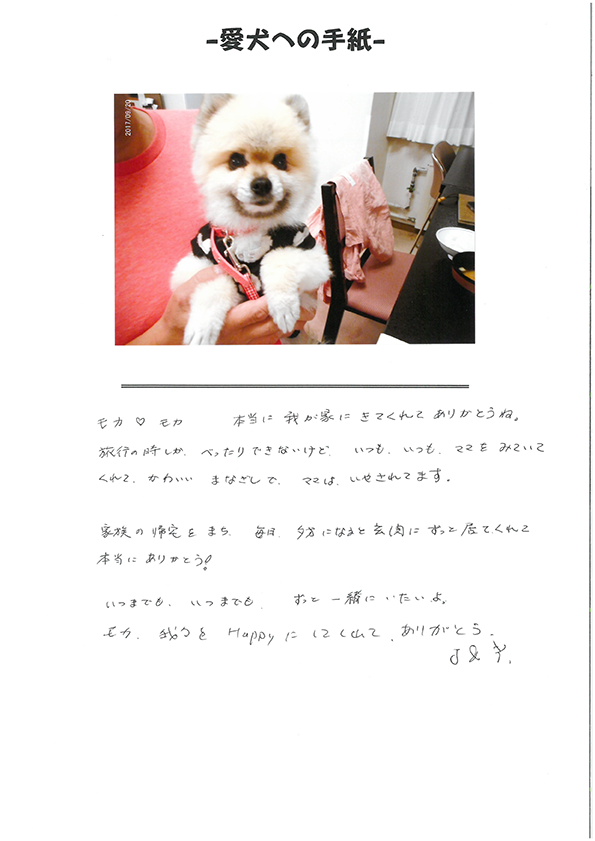 -愛犬への手紙-
2017/09/20
モカ ♡ モカ 本当に 我が家に きてくれて ありがとうね。
旅行の時しか、べったりできないけど、いつも、いつも、ママを みていて
くれて、かわいい まなざしで、ママは、いやされてます。
家族の帰宅をまち、毎日、夕方になると玄関にずっと居てくれて
本当にありがとう!
いつまでも、いつまでも、ずっと一緒にいたいよ。
モカ、我家を Happyにしてくれて、ありがとう。
J & Y.